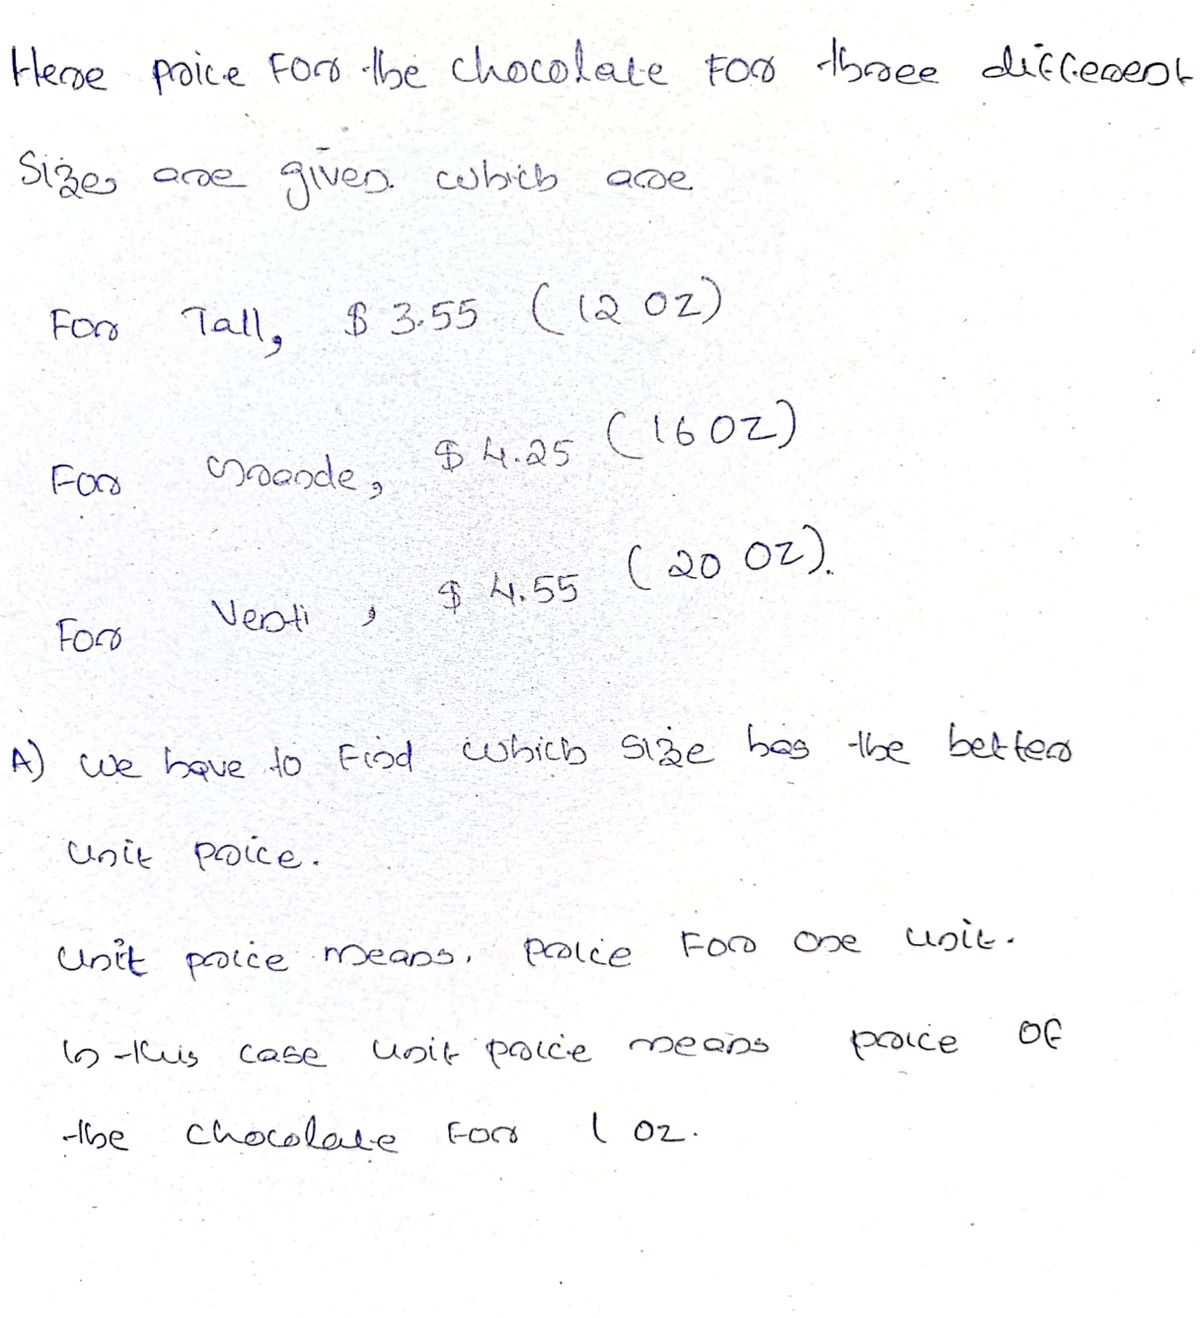 Here price For the chocolate For three different
Sizes are given which are
For Tall, $ 3.55 (12 oz)
For Grande, $ 4.25 (16 oz)
For Venti, $ 4.55 (20 oz).
A) we have to Find which size has the better
unit price.
unit price means, price For one unit.
In this case unit price means price of
the chocolate For 1 oz.